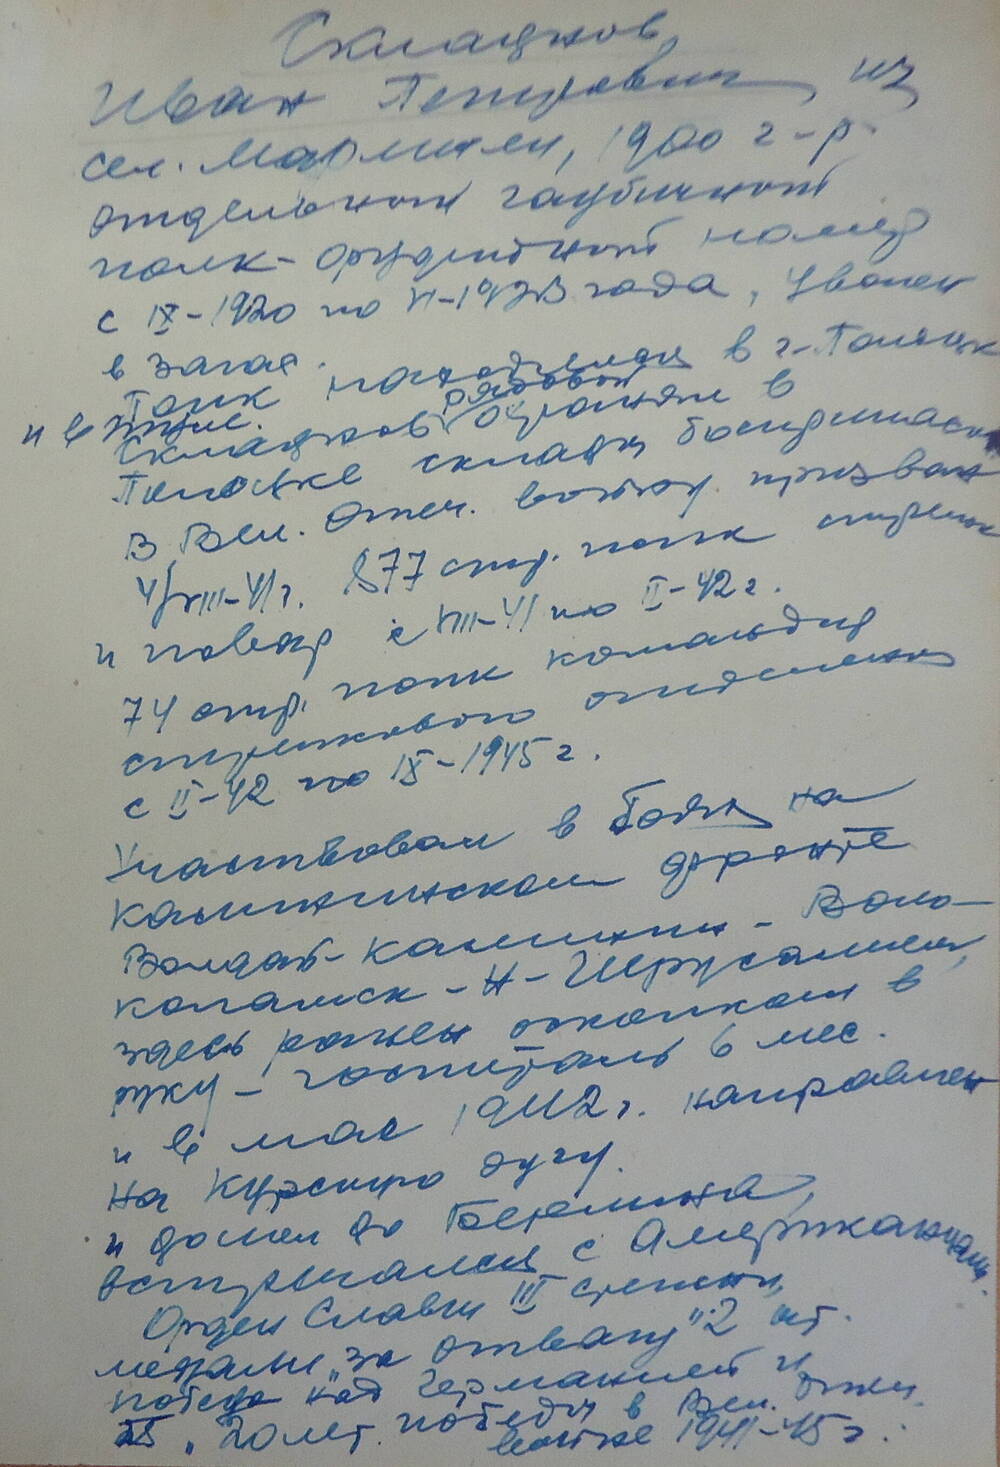 Складнов
Иван Петрович, из
сел. Мормыли, 1900 г-р.
отдельной гаубичной
полк - орудийный номер
с IX-1920 по VI-1923 года, Уволен
в запас.
Полк находился в г-Полоцк
и в
Складнов рядовой охранял в
Полоцке склады боеприпасов
В Вел. Отеч. войну призван
4/VIII-41 г. 877 стр. полк стрелок
и повар с VIII-41 по II-42 г.
74 стр. полк командир
стрелкового отделения
с II-42 по IX-1945 г.
Участвовал в боях на
калининском фронте
Валдай - Калинин - Воло-
коламск - Н - Иерусалим,
здесь ранен осколком в
руку - госпиталь 6 мес.
и в мае 1942 г. направлен
на Курскую дугу.
и дошел до Берлина,
встречался с Американцами.
Орден Славы III степени,
медали "за отвагу" 2 шт.
победа над Германией и
"20 лет победы в Вел. Отеч.
войне 1941-45 г.